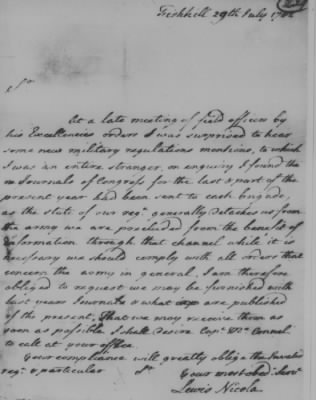 Fishkill 29th July 1782
Sr.
At a late meeting of field officers by
his Excellencies orders I was surprised to hear
some new military regulations mention'd, to which
I was an entire stranger, on enquiry I found the
Journals of Congress for the last & part of the
present year had been sent to each brigade,
as the state of our regt. generally detaches us from
the army we are precluded from the benefit of
information through that channel while it is
necessary we should comply with all orders that
concern the army in general. I am therefore
obliged to request we may be furnished with
last years Journals & what are published
of the present, that we may receive them as
soon as possible I shall desire Capt. McConnel
to call at your office.
Your compliance will greatly oblige the Invalid
regt. & particular Sr.
Your most obedt. Servt.
Lewis Nicola